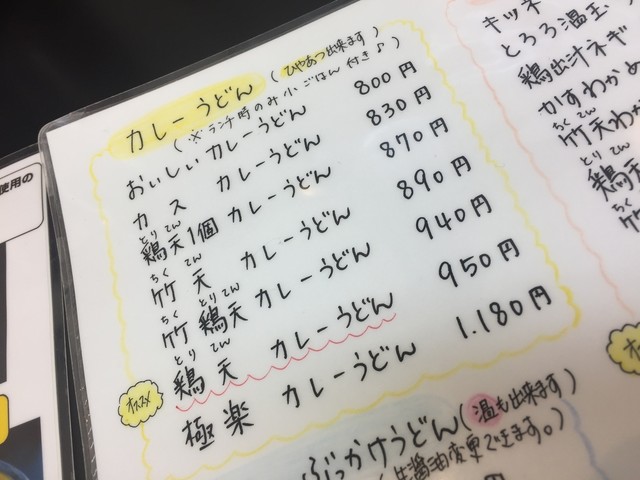 カレーうどん (ひやあつ出来ます)
(※ランチ時のみ小ごはん付き♪)
おいしいカレーうどん 800円
カス カレーうどん 830円
とりてん
鶏天1個 カレーうどん 870円
ちくてん
竹天 カレーうどん 890円
ちく とりてん
竹鶏天 カレーうどん 940円
とりてん
オススメ 鶏天 カレーうどん 950円
極楽 カレーうどん 1.180円
ぶっかけうどん (温も出来ます)
生醤油変更できます。)
キツネ
とろろ温玉
鶏出汁ネギ
かすわかめ
ちくてん
竹天わか
とりてん
鶏天
ちく
竹
使用の